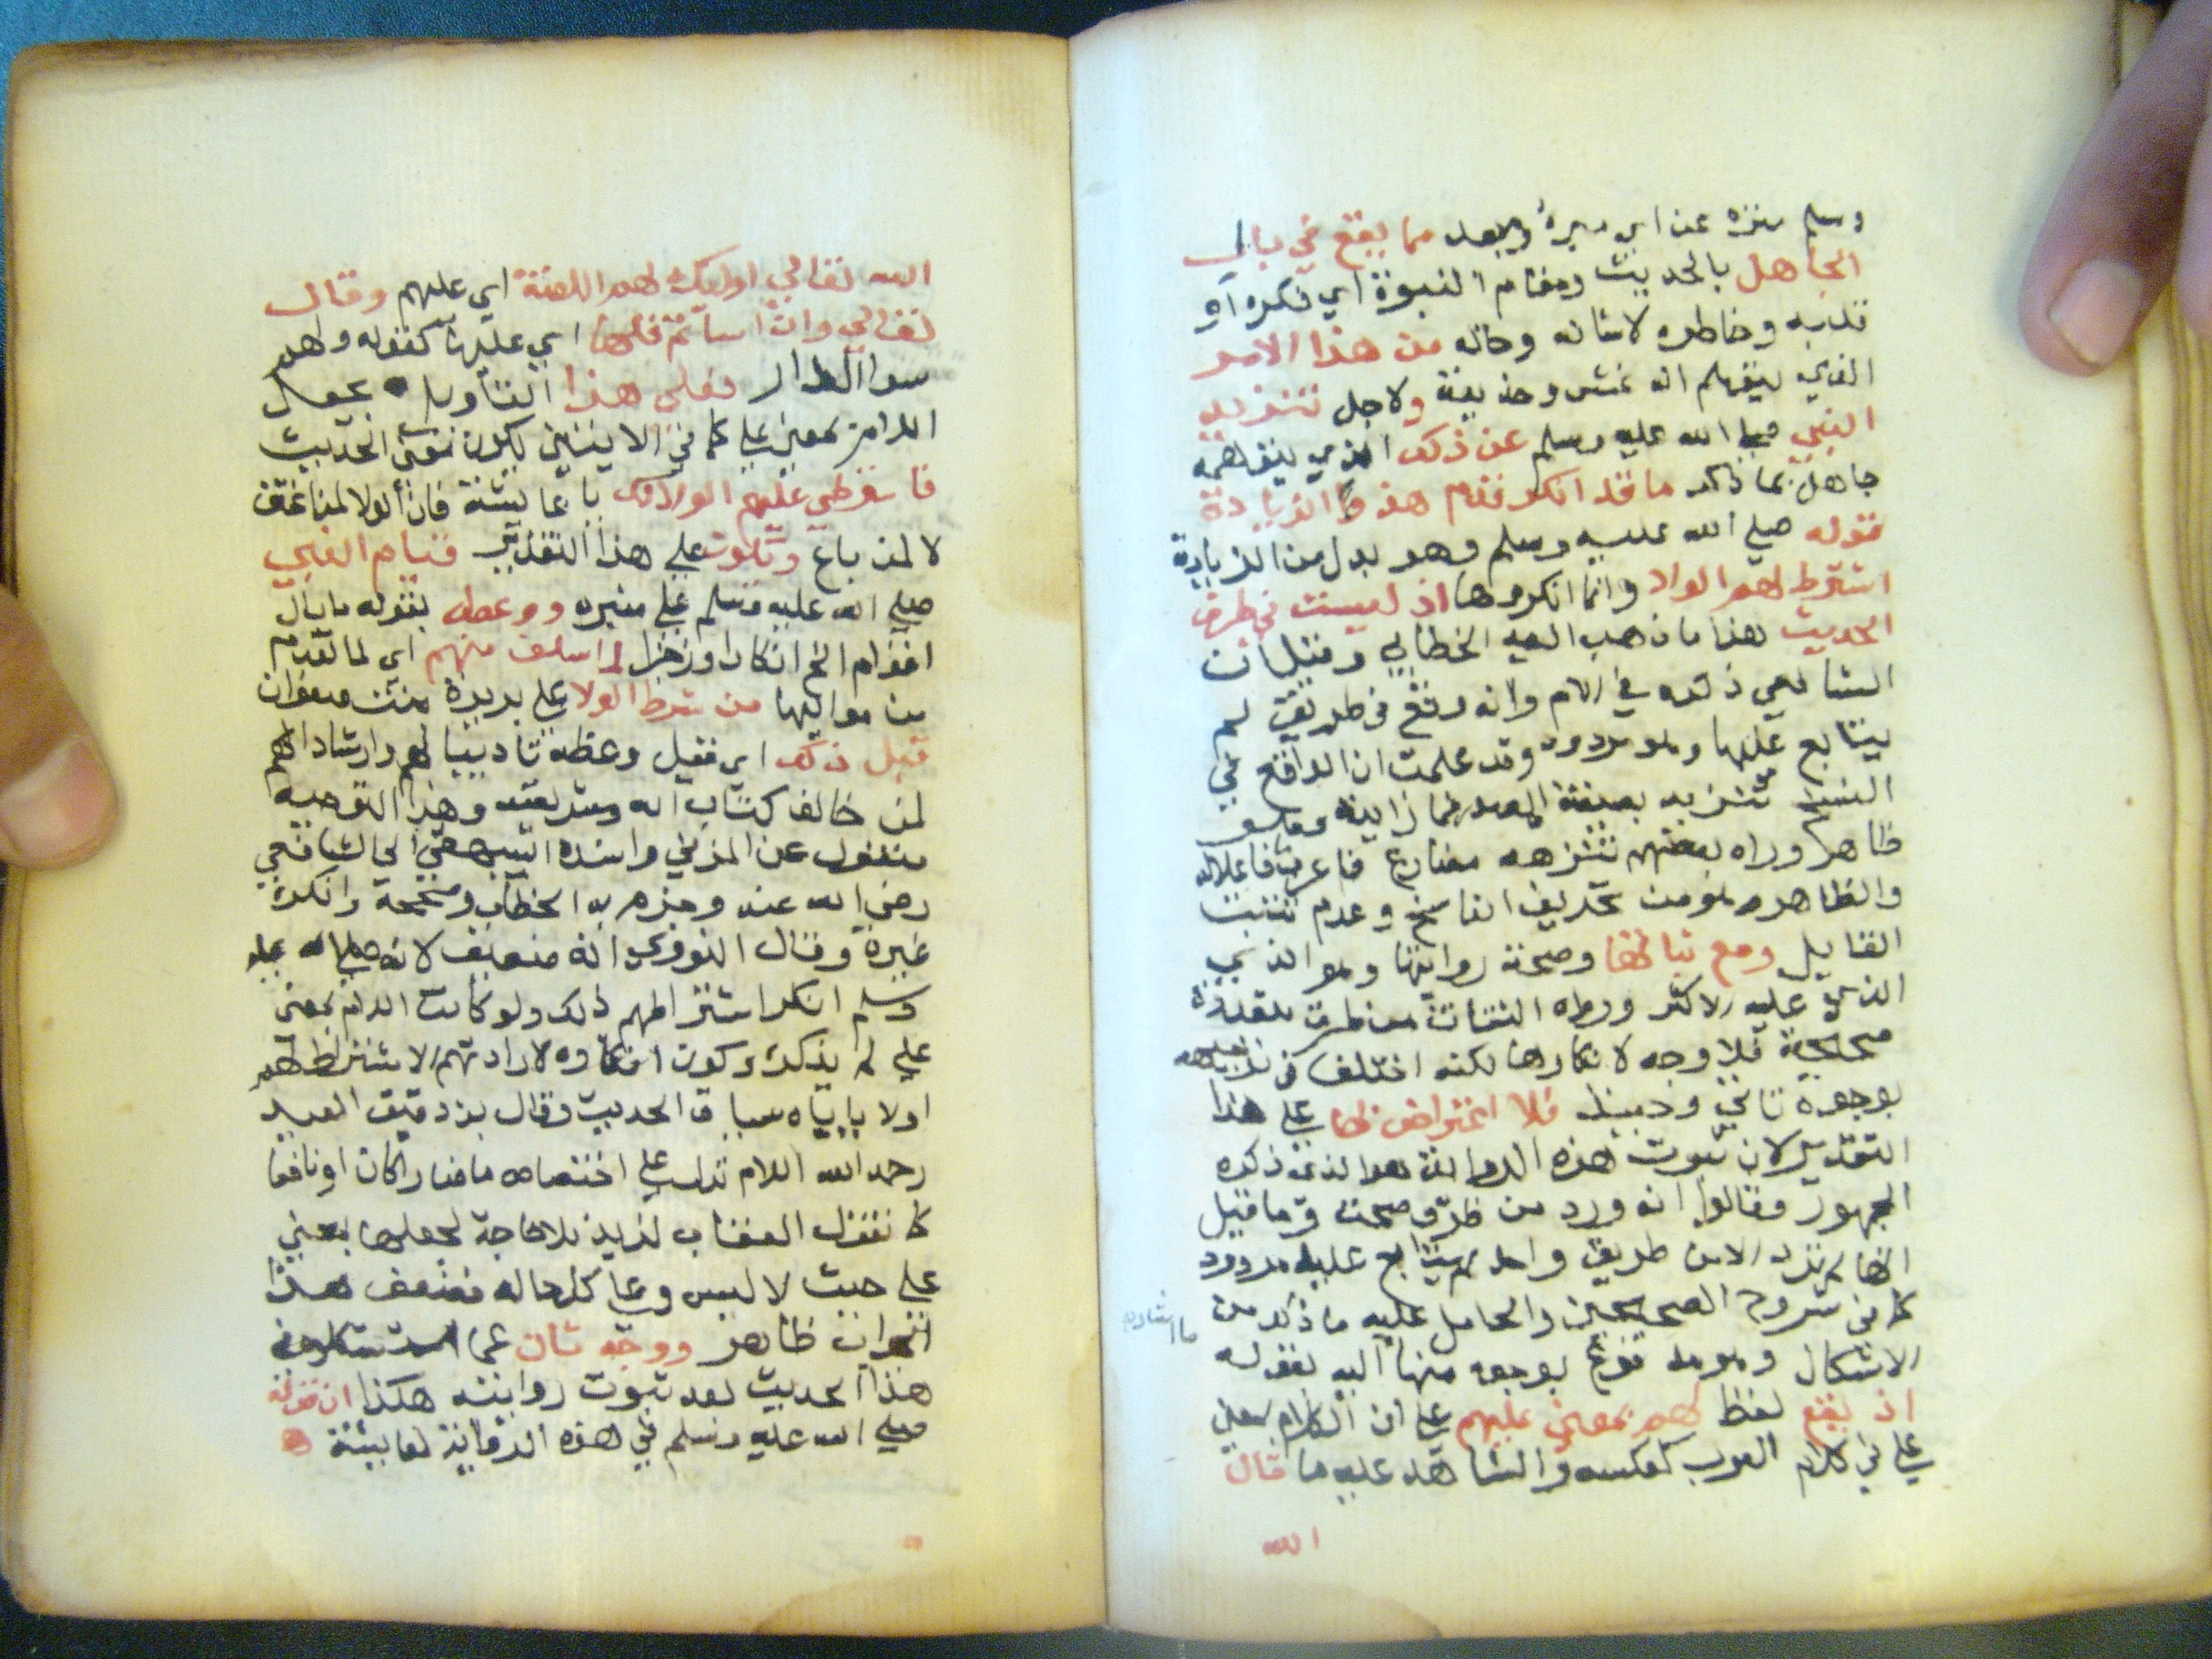 وسلم منزه عن اي مبرة وبعد مما يقع في بال
الجاهل بالحديث ومقام النبوة اي فكره او
قلبه وخاطره لاشانه وحاله من هذا الامر
الذي يتوهم انه غش وخديعة ولاجل تنزيه
النبي صلى الله عليه وسلم عن ذلك الذي يتوهمه
جاهل بما ذكر ما قد انكر قوم هذه الزيادة
قوله صلى الله عليه وسلم وهو بدل من الزيادة
اشترطي لهم الولاء وانما انكروها اذ ليست في طرق
الحديث هذا ما ذهب اليه الخطابي وقيل ان
الشافعي ذكره في الام وانه وقع في طريق لم
يتابع عليها وهو مردود وقد علمت ان الواقع في
النسخ تنزيه بصيغة المصدر فما زايدة
ظاهر وراه بعضهم تنزهه مضارع فاعلاله
والظاهر هو من تحريف الناسخ وعدم تثبت
القايل ومع ثباتها وصحة روايتها وهو الذي
الذي عليه الاكثر ورواه الثقات من طرق متعددة
صحيحة فلا وجه لانكارها لكنه اختلف في توجيهه
بوجوه تاتي وحينئذ فلا اعتراض بها على هذا
التقدير لان ثبوت هذه الرواية هو الذي ذكره
الجمهور وقالوا انه ورد من طرق صحت وما قيل
انها لم ترد الا من طريق واحد لم يتابع عليه مردود
كما في شروح الصحيحين والحامل عليه ما ذكر من
ما اشار
الاشكال وهو مدفوع بوجوه منها اليه بقوله
اذ يقع لفظ لهم بمعنى عليهم على ان اللام بمعنى
على في كلام العرب كعكسه والشاهد عليه ما قال
الله
الله تعالى اولئك لهم اللعنة اي عليهم وقال
تعالى وان اساتم فلها اي عليها كقوله ولهم
سوء الدار فعلى هذا التاويل بجعل
اللام بمعنى على كما في الايتين يكون معنى الحديث
فاشترطي عليهم الولاء لك يا عايشة فان الولا لمن اعتق
لا لمن باع ويكون على هذا التقدير قيام النبي
صلى الله عليه وسلم على منبره ووعظه بقوله ما بال
اقوام الخ انكارا وزجرا لما سلف منهم اي لما تقدم
من مواليها من شرط الولا على بريرة بنت صفوان
قبل ذلك اي فقيل وعظه تاديبا لهم وارشادا لهم
لمن خالف كتاب الله وشريعته وهذا التوجيه
منقول عن المزني واسنده البيهقي الى الشافعي
رضي الله عنه وجزم به الخطابي وصححه وانكره
غيره وقال النووي انه ضعيف لانه صلى الله عليه
وسلم انكر اشتراطهم ذلك ولو كانت اللام بمعنى
على لم ينكره وكون انكاره لارادتهم الاشتراط لهم
اولا ياباه سياق الحديث وقال بن دقيق العيد
رحمه الله اللام تدل على اختصاص ما ضارا كان او نافعا
كما تقول العقاب لزيد فلا حاجة لجعلها بمعنى
على حيث لا لبس وعلى كل حاله فضعف هذا
الجواب ظاهر ووجه ثان عما استشكلوه في
هذا الحديث بعد ثبوت روايته هكذا ان قوله
صلى الله عليه وسلم في هذه الرواية لعايشة